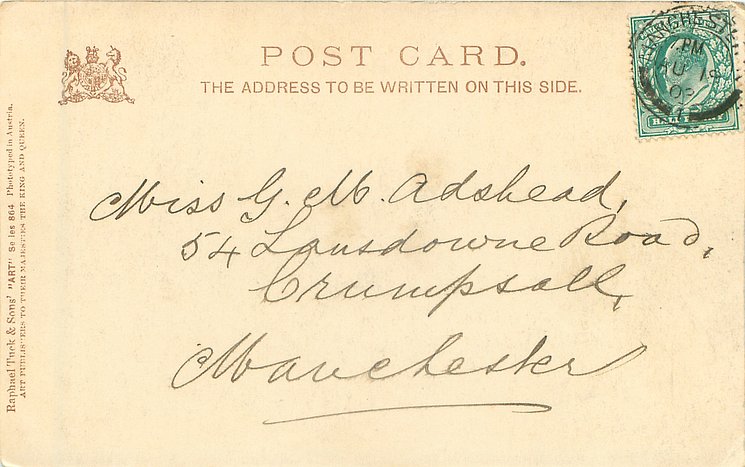 POST CARD.
THE ADDRESS TO BE WRITTEN ON THIS SIDE.
MANCHESTER
PM
AU 18
HALFPENNY
Miss G. M. Adshead,
54 Lansdowne Road,
Crumpsall,
Manchester
Raphael Tuck & Sons' "ART" Se ies 864 Phototyped in Austria.
ART PUBLISHERS TO THEIR MAJESTIES THE KING AND QUEEN.